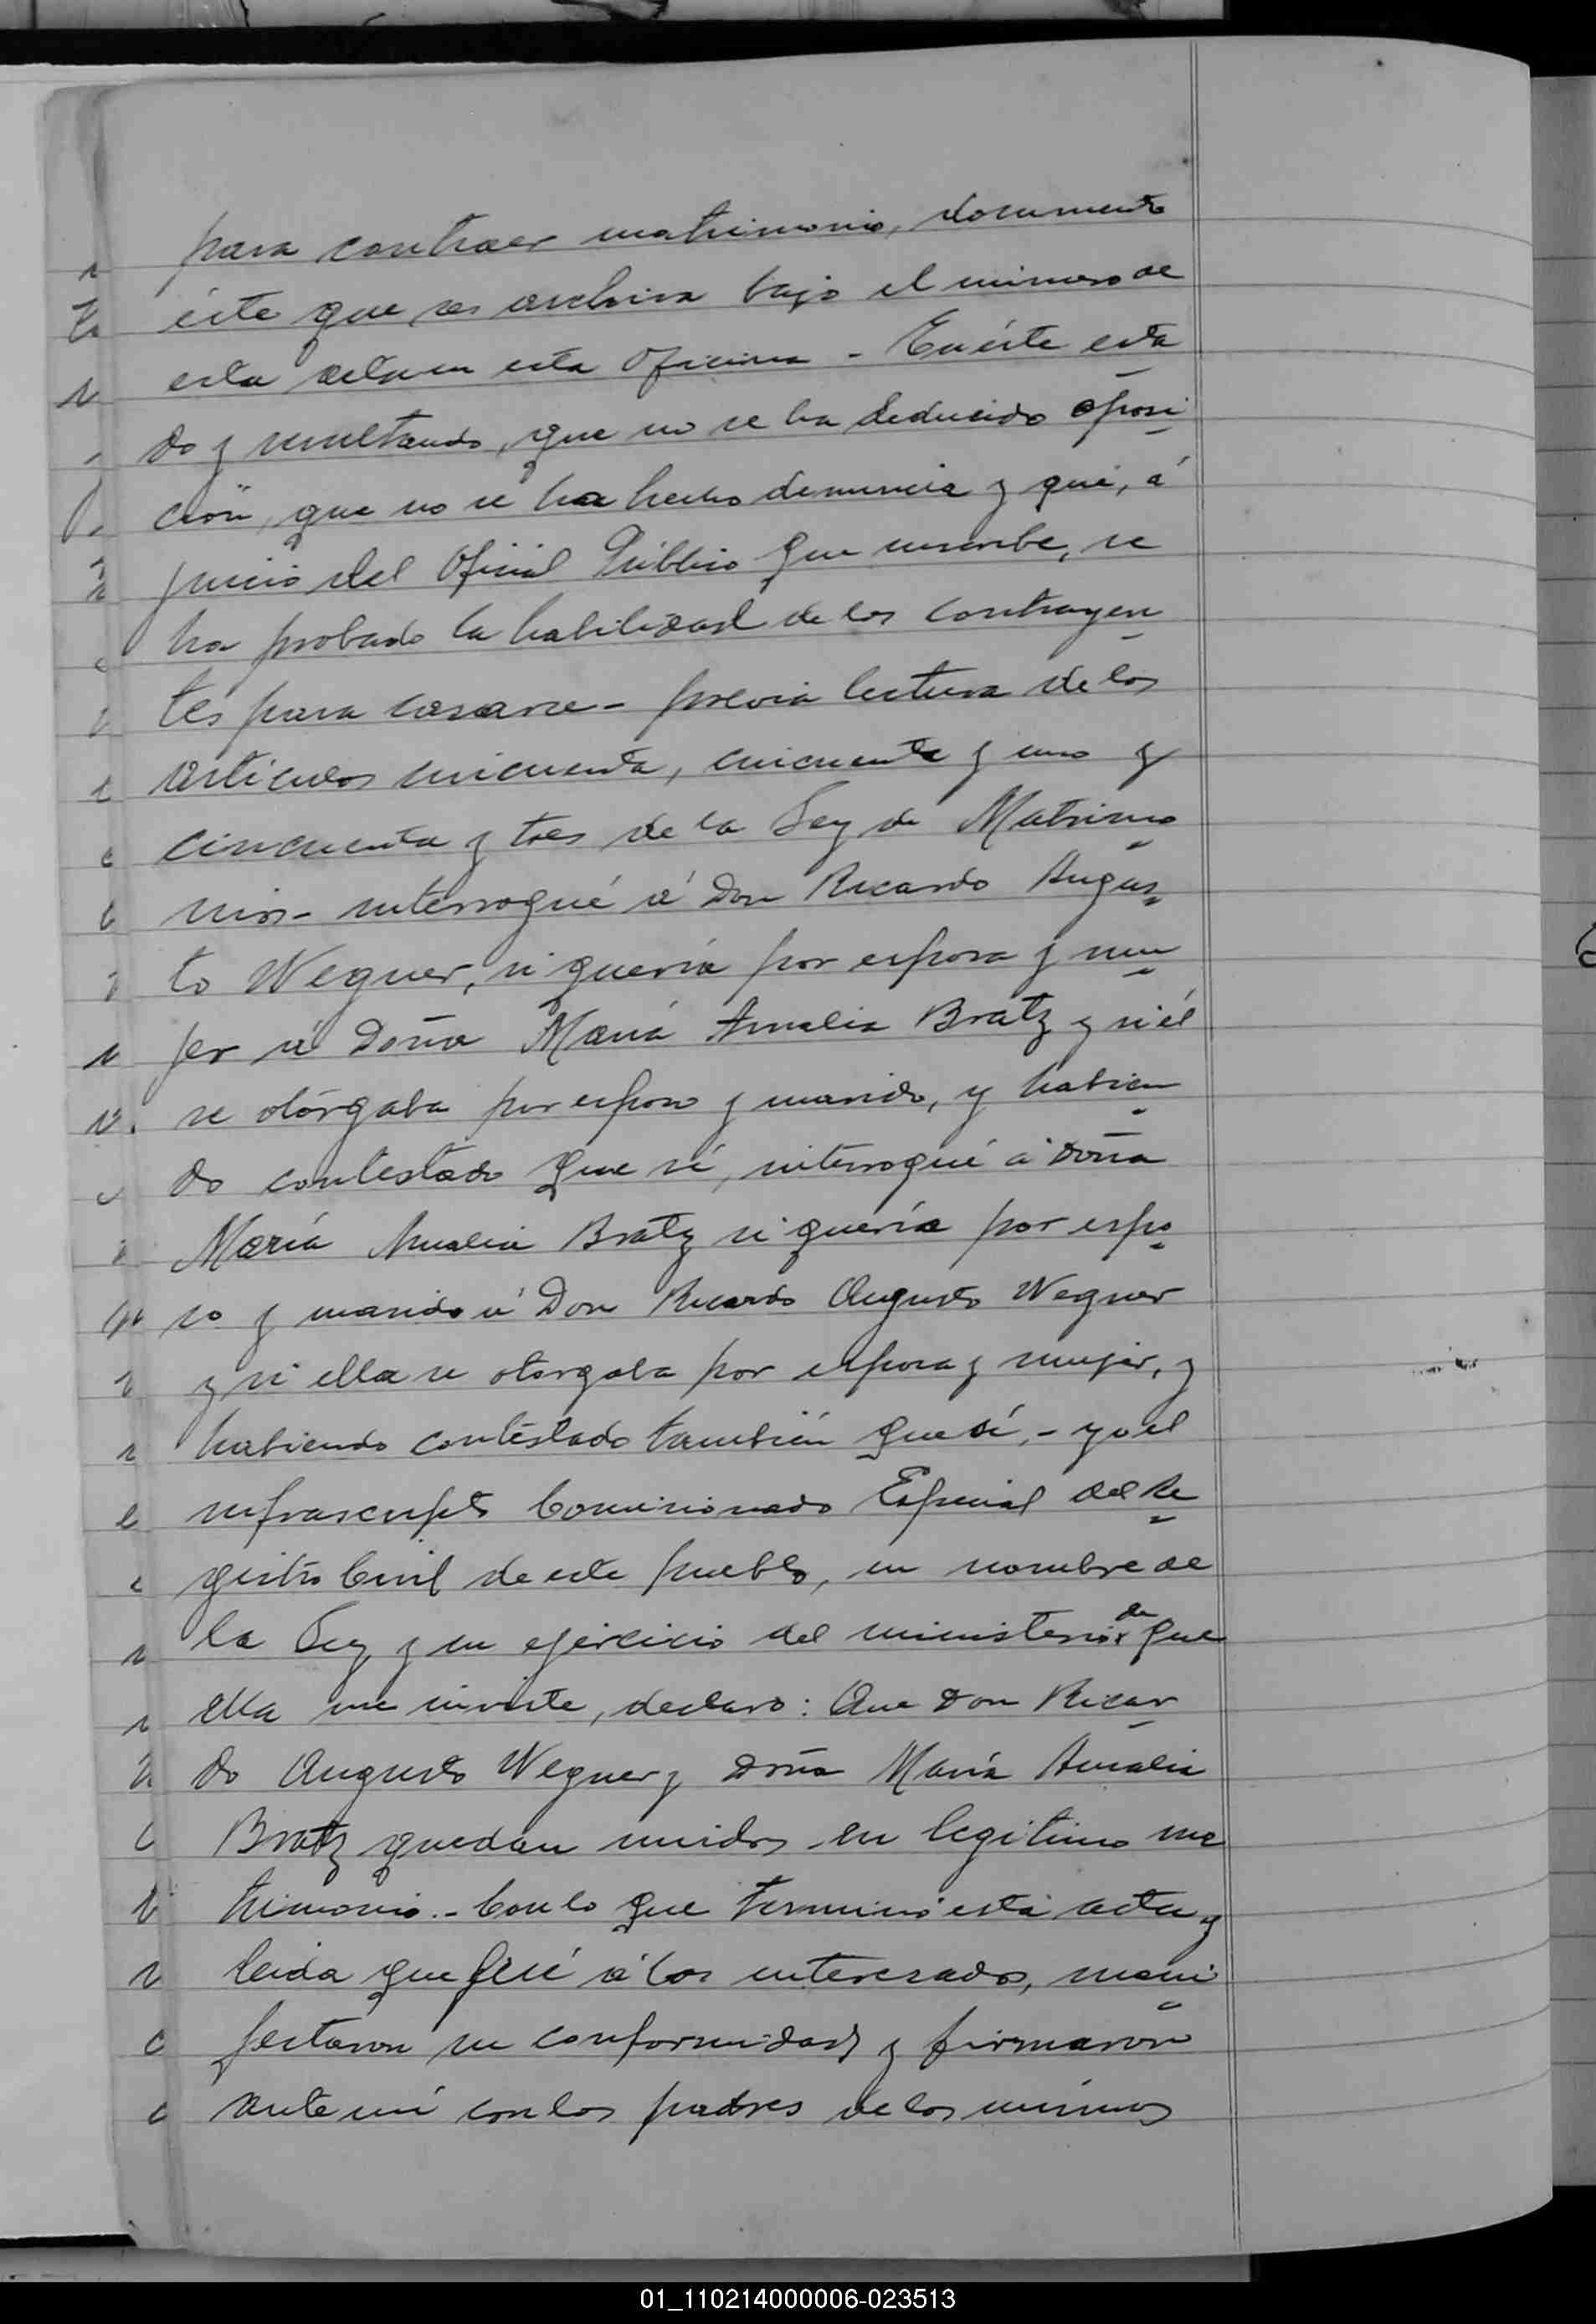 para contraer matrimonio, documento
éste que se archiva bajo el número de
esta acta en esta Oficina - En éste esta
do y resultando, que no se ha deducido oposi
ción, que no se ha hecho denuncia y que, á
juicio del Oficial Público que suscribe, se
ha probado la habilidad de los contrayen
tes para casarse - previa lectura de los
artículos cincuenta, cincuenta y uno y
cincuenta y tres de la Ley de Matrimo
nio - interrogué á Don Ricardo Augus
to Wegner, si quería por esposa y mu
jer á Doña María Amalia Bratz y si él
se otórgaba por esposo y marido, y habien
do contestado que sí, interrogué á Doña
María Amalia Bratz si quería por espo
so y marido á Don Ricardo Augusto Wegner
y si ella se otorgaba por esposa y mujer, y
habiendo contestado también que sí, - yo el
infrascripto Comisionado Especial del Re
gistro Civil de este pueblo, en nombre de
la Ley y en ejercicio del ministerio de que
ella me inviste, declaro: Que Don Ricar
do Augusto Wegner y Doña María Amalia
Bratz quedan unidos en legítimo ma
trimonio. - Con lo que terminó esta acta y
leida que fué á los interesados, mani
festaron su conformidad y firmaron
ante mí con los padres de los mismos
01_110214000006-023513